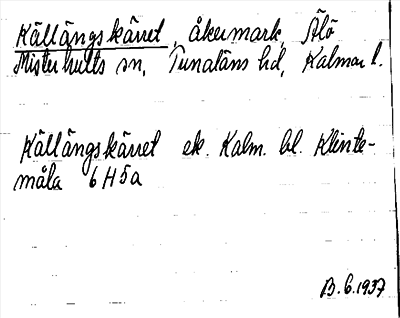 Källängskärret, åkermark, Älö
Misterhults sn, Tunaläns hd, Kalmar l.
Källängskärret ek. Kalm. bl. Klinte-
måla 6H5a
B.G.1937